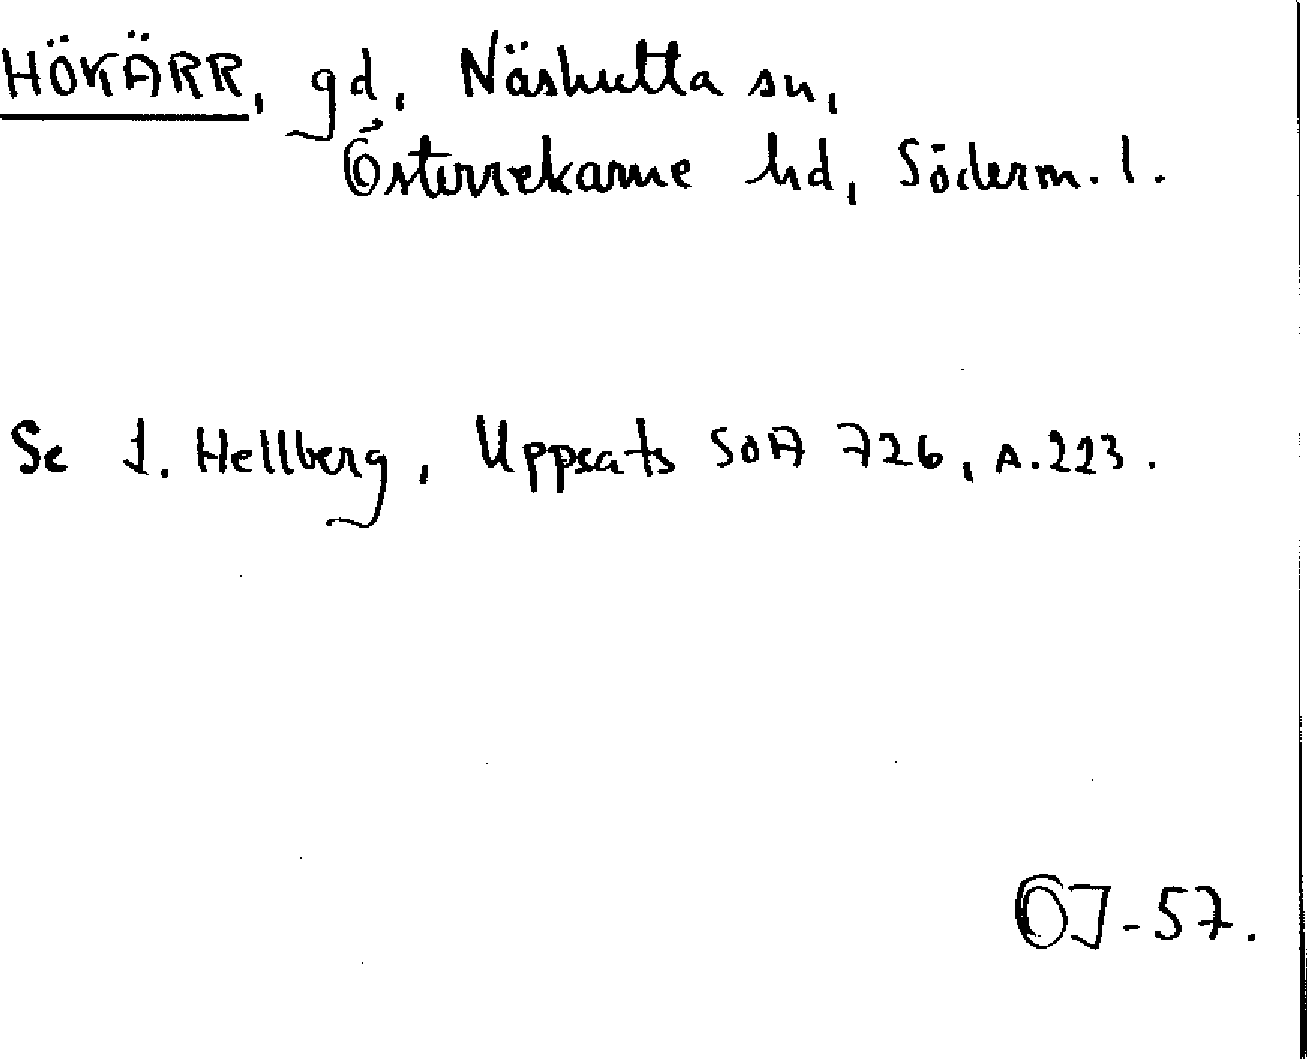 HÖKÄRR, gd, Näshulta sn,
Österrekarne hd, Söderm. l.
Se L. Hellberg, Uppsats SOA 726, s. 223.
OJ-57.